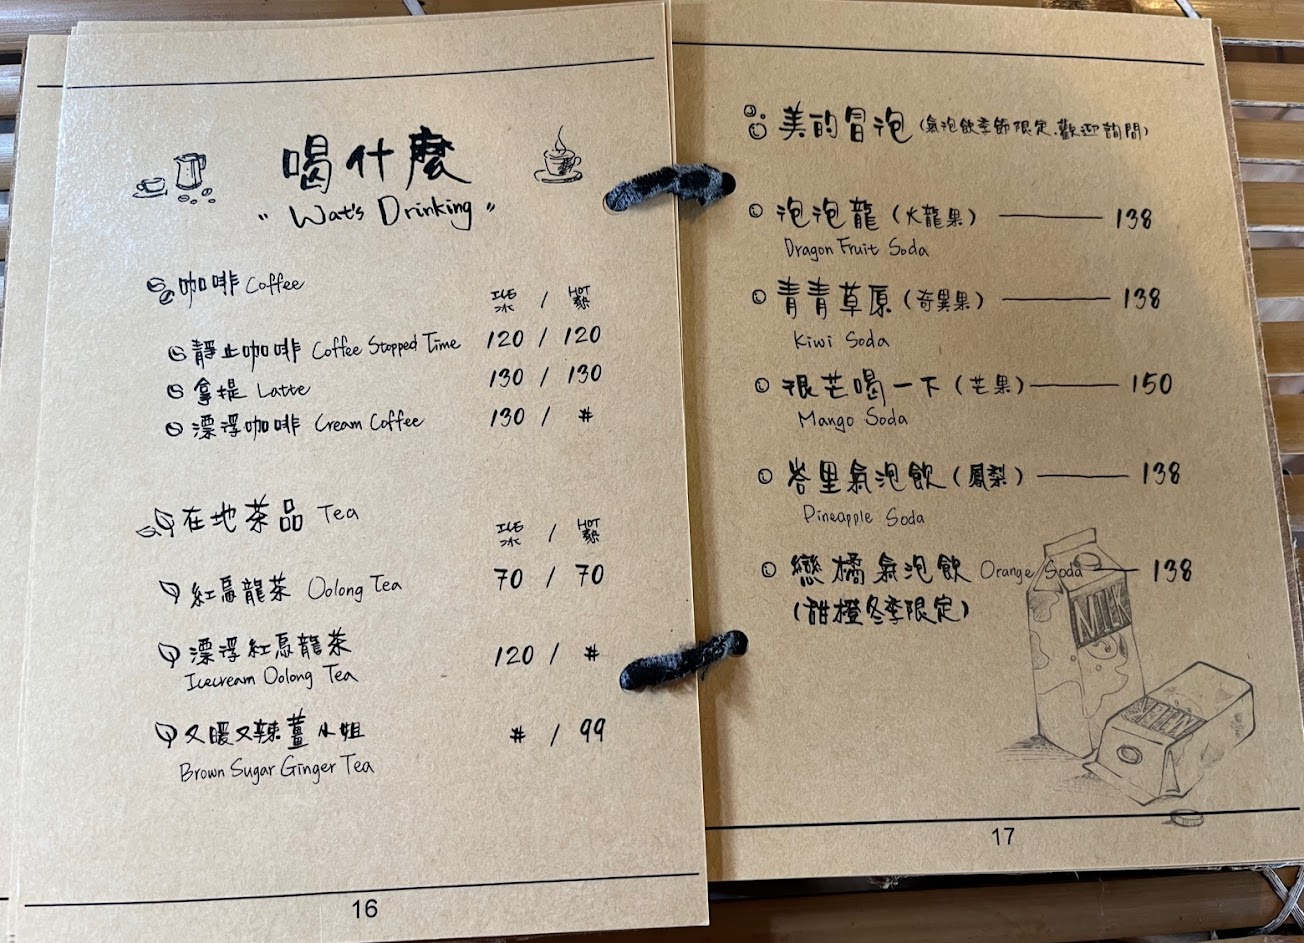 喝什麼
"Wat's Drinking"
咖啡 Coffee
ICE / HOT
冰 熱
靜止咖啡 Coffee Stopped Time 120 / 120
拿提 Latte 130 / 130
漂浮咖啡 Cream Coffee 130 / #
在地茶品 Tea
ICE / HOT
冰 熱
紅烏龍茶 Oolong Tea 70 / 70
漂浮紅烏龍茶 120 / #
Icecream Oolong Tea
又暖又辣薑小姐 # / 99
Brown Sugar Ginger Tea
16
美的冒泡(氣泡飲季節限定.歡迎詢問)
泡泡龍(火龍果) 138
Dragon Fruit Soda
青青草原(奇異果) 138
Kiwi Soda
很芒喝一下(芒果) 150
Mango Soda
峇里氣泡飲(鳳梨) 138
Pineapple Soda
戀橘氣泡飲 Orange Soda 138
(甜橙冬季限定)
MILK
17